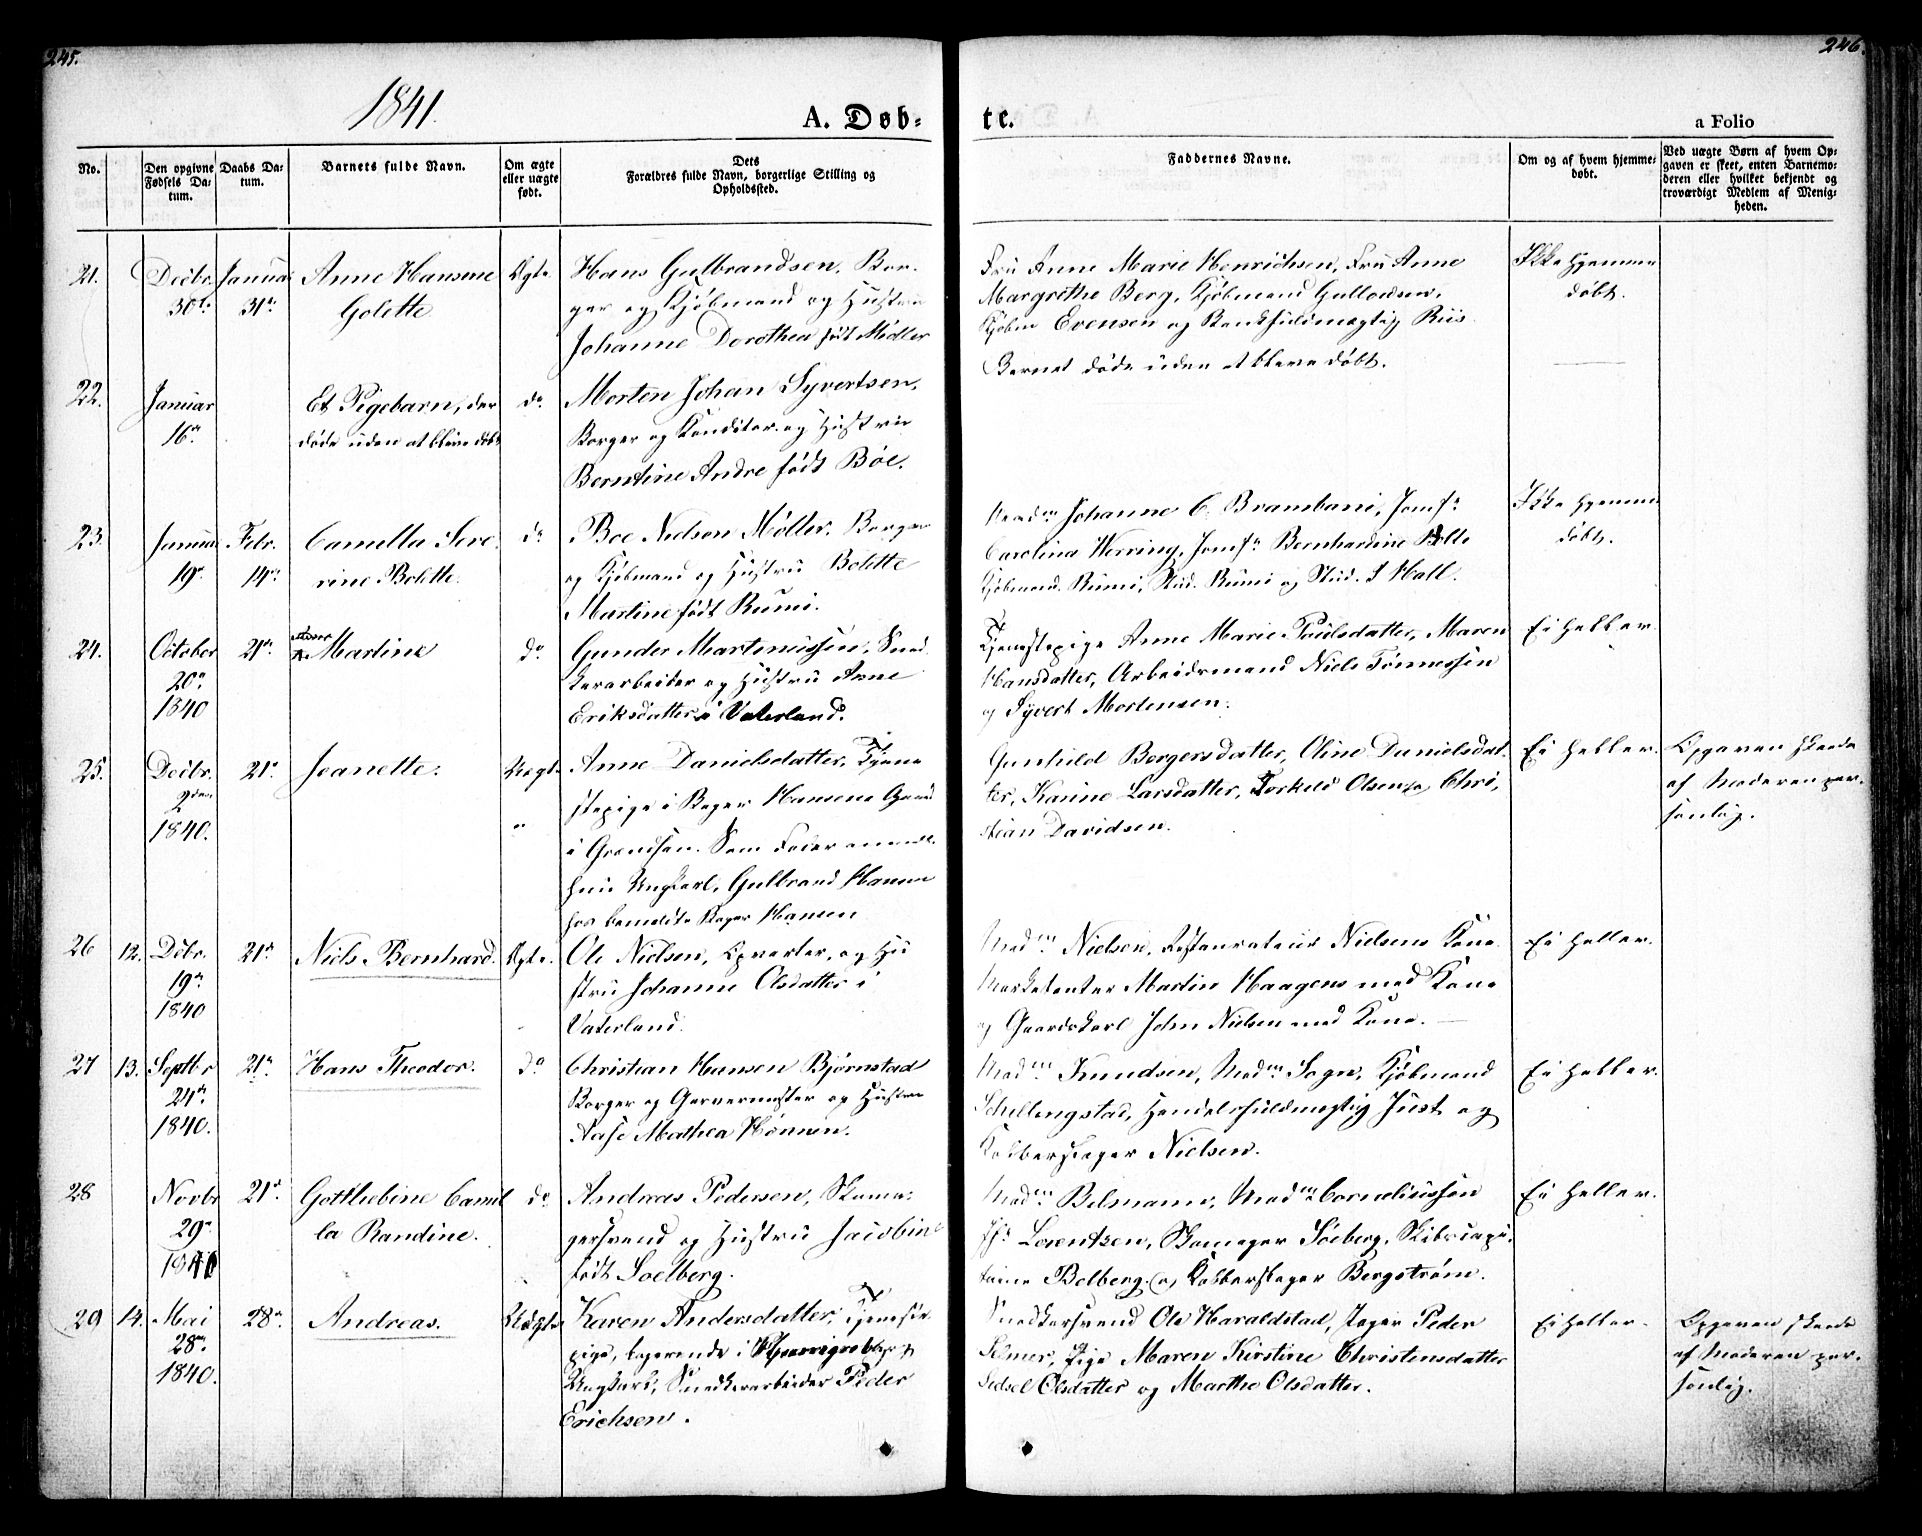 245.
246.
1841.
A. Døb-
te.
a Folio
No.
Den opgivne Fødsels Da-
tum.
Daabs Da-
tum.
Barnets fulde Navn.
Om ægte
eller uægte
født.
Dets
Forældres fulde Navn, borgerlige Stilling og
Opholdssted.
Faddernes Navne.
Om og af hvem hjemme-
døbt.
Ved uægte Børn af hvem Op-
gaven er skeet, enten Barnemo-
deren eller hvilket bekjendt og
troværdigt Medlem af Menig-
heden.
21.
Decbr.
30te
Januar
31te
Anne Hansine
Golette
Ægte
Hans Gulbrandsen, Bor-
ger og Kjøbmand og Hustru
Johanne Dorothea født Midler
Fru Anne Marie Henrichsen, Fru Anne
Margrethe Berg, Kjøbmand
Kjøbm Evensen og Bankfuldmægtig Riis.
Ikke hjemme
døbt.
22.
Januar
16de
Et Pigebarn, der
døde uden at blive døbt
do
Morten Johan Syvertsen,
Borger og Conditor og Hustru
Berntine Andre født Bøe.
Barnet døde uden at blive døbt.
23.
Januar
19de
Febr.
14de
Camella Seve-
rine Bolette.
do
Boe Nielsen Møller, Borger
og Kjøbmand og Hustru Bolette
Martine født Rumi.
Madm Johanne C. Brambani, Jomfr
Carolina Werring, Jomfr Bernhardine
Kjøbmand Rumi, Stud. Rumi og Stud. J Hall.
Ikke hjemme
døbt.
24.
October
20de
1840
21de
Martine
do
Gunder Martinussen, Sned-
kerarbeider og Hustru Anne
Eriksdatter i Vaterland.
Tjenestepige Anne Marie Paulsdatter, Maren
Hansdatter, Arbeidsmand Niels Tønnessen
og Syvert Mortensen.
Ei heller.
25.
Decbr.
2den
1840.
21de
Jeanette.
Uægte
Anne Danielsdatter, Tjene-
stepige i Bager Hansens Gaard
i Grændsen. Som Fader anmeldt
hun Ungkarl, Gulbrand Hansen
hos bemeldte Bager Hansen
Gunhild Borgersdatter, Oline Danielsdat-
ter, Karine Larsdatter, Torkeld Olsen og Chri-
stian Davidsen.
Ei heller.
Opgaven skeede
af Moderen per-
sonlig.
26
12.
Dcbr.
19de
1840
21de
Niels Bernhard.
Ægte.
Ole Nielsen, Opvarter, og Hu-
stru Johanne Olsdatter i
Vaterland.
Madm Nielsen, Restaurateur Nielsens Kone
Marketenter Martin Haagens med Kone
og Gaardskarl John Nielsen med Kone.
Ei heller.
27
13.
Septbr
24de
1840.
21de
Hans Theodor.
do
Christian Hansen Bjørnstad
Borger og Garvermester og Hustru
Aase Mathea Hansen.
Madm Knudsen, Madm Sogn, Kjøbmand
Schillingstad, Handelsfuldmægtig Just og
Kobberslager Nielsen.
Ei heller.
28
Novbr
29de
1840
21de
Gotthebine Camil-
la Randine.
do
Andreas Pedersen, Skoma-
gersvend og Hustru Jacobine
født Soelberg.
Madm Belmann, Madm Corneliussen
Jfr Lorentzen, Skomager Soeberg, Skibscapi-
taine Belberg og Kobberslager Bergstrøm.
Ei heller.
29
14.
Mai
28de
1840.
28de
Andreas.
Uægte
Karen Andersdatter, Tjeneste-
pige, logerende i
Ungkarl, Snedkerarbeider Peder
Erichsen.
Snedkersvend Ole Haraldstad, Jæger Peder
Selmer, Pige Maren Kirstine Christensdatter
Sidsel Olsdatter og Marthe Olsdatter.
Ei heller.
Opgaven skeede
af Moderen per-
sonlig.